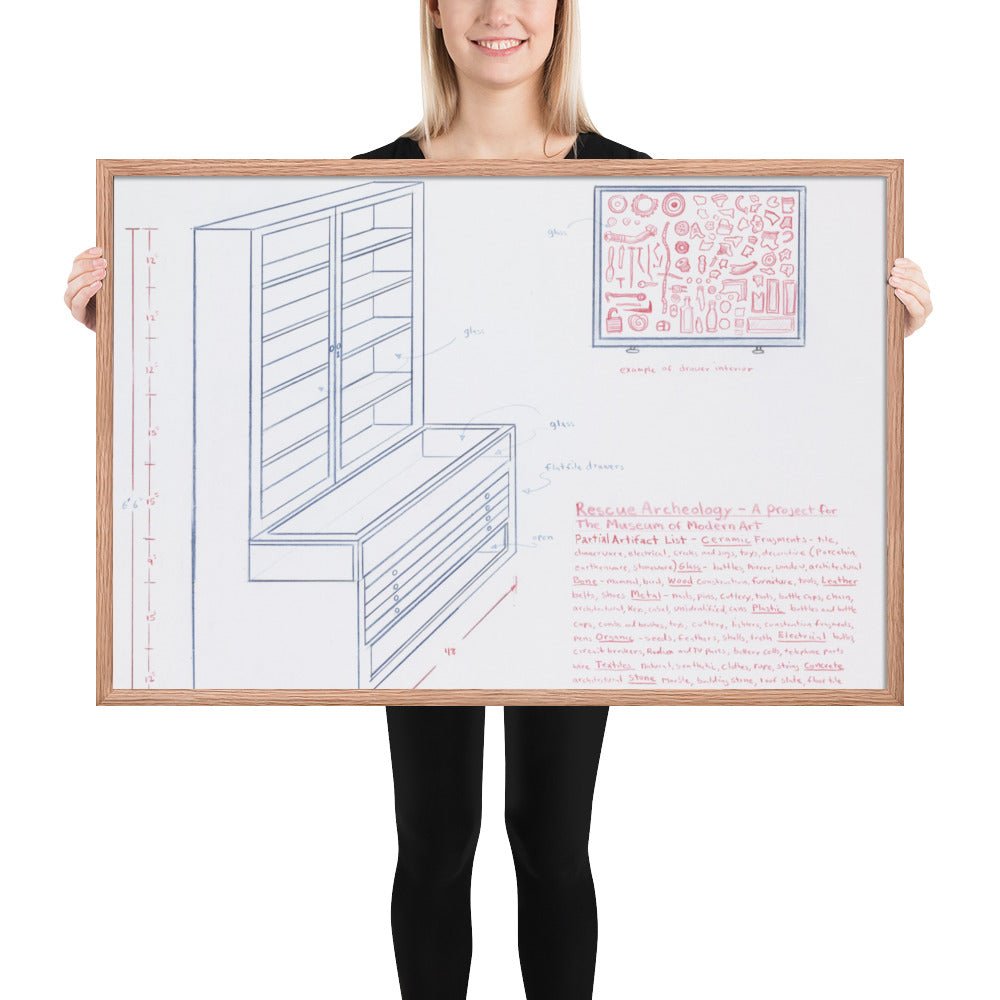 12"
12"
12"
15"
6' 6"
15"
9"
15"
12"
glass
glass
flatfile drawers
open
48
glass
example of drawer interior
Rescue Archeology - A project for
The Museum of Modern Art
Partial Artifact List - Ceramic Fragments - tile,
dinnerware, electrical, crocks and jugs, toys, decorative (porcelain,
earthenware, stoneware) Glass - bottles, mirror, window, architectural
Bone - mammal, bird, Wood construction, furniture, tools, Leather
belts, shoes Metal - nails, pins, cutlery, tools, bottle caps, chain,
architectural, keys, coins, unidentified, cans Plastic bottles and bottle
caps, combs and brushes, toys, cutlery, lighters, construction fragments,
pens Organic - seeds, feathers, shells, teeth Electrical bulbs,
circuit breakers, Radio and TV parts, battery cells, telephone parts
wire Textiles natural, synthetic, clothes, rope, string Concrete
architectural Stone marble, building stone, roof slate, floor tile